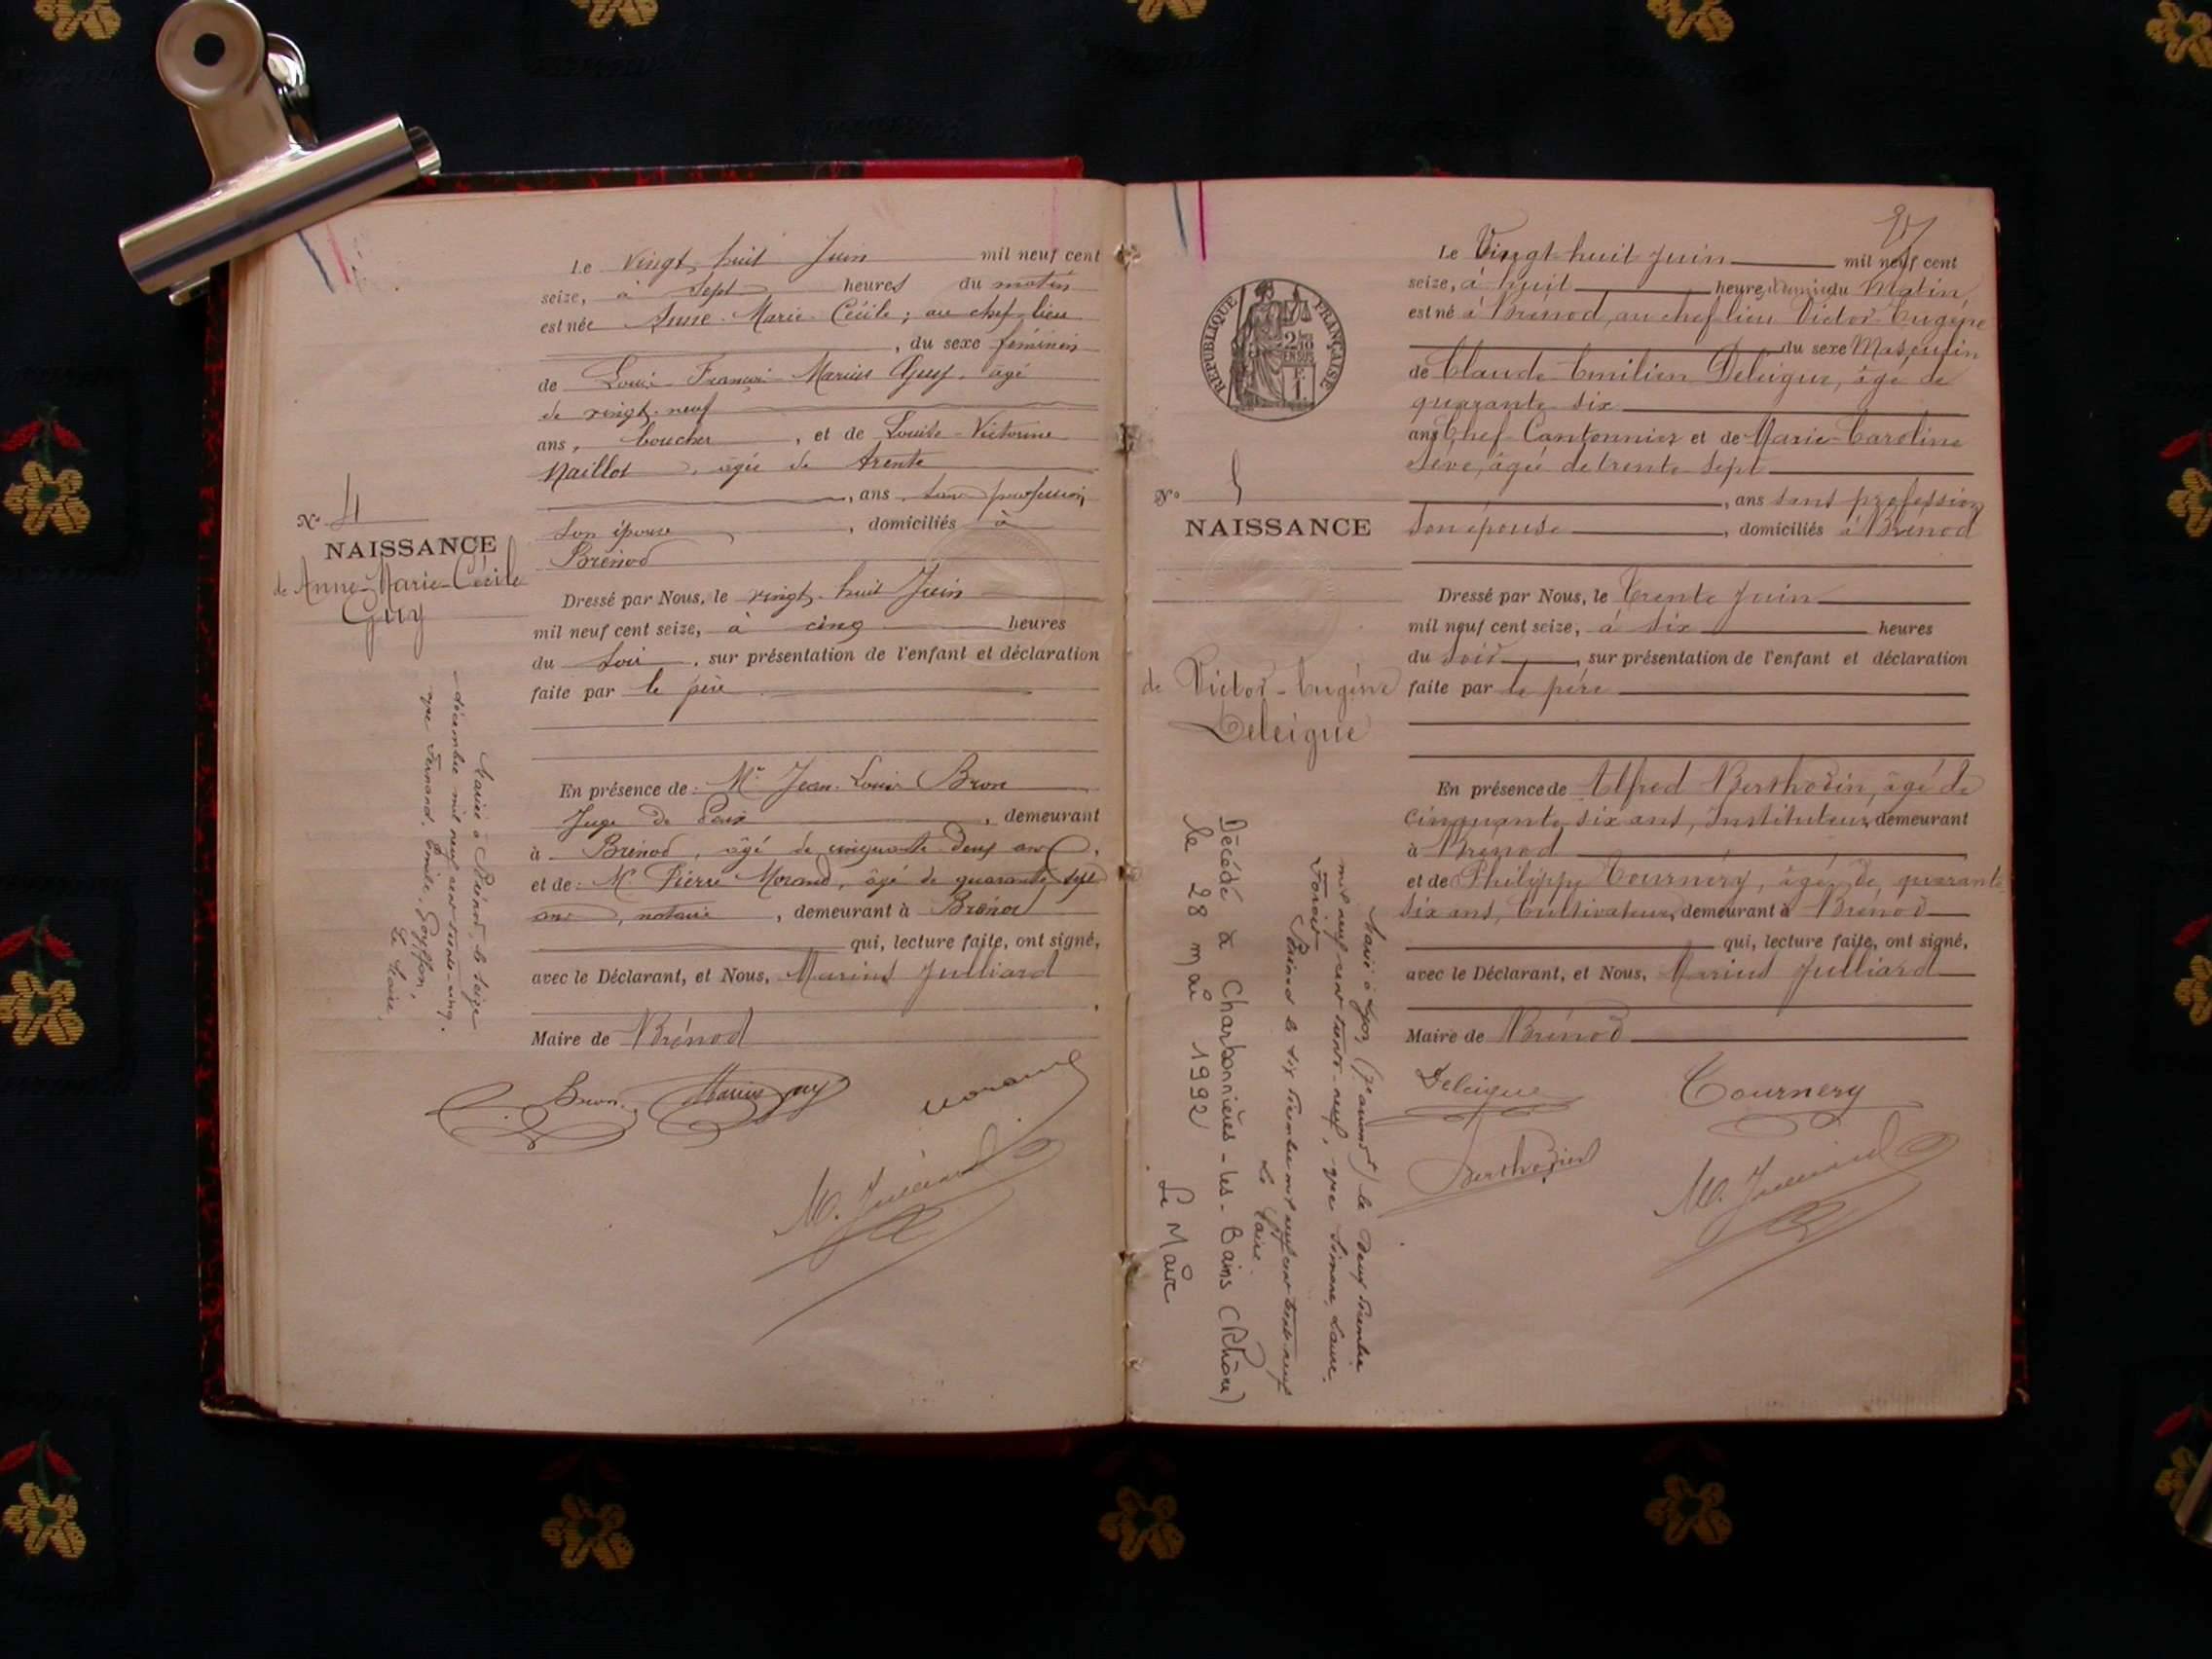 Le vingt huit Juin mil neuf cent
seize, à sept heures du matin
est née Anne-Marie-Cécile ; au chef-lieu
, du sexe féminin
de Louis-François-Marius Guy, âgé
de vingt-neuf
ans, boucher, et de Louise-Victorine
Maillot, âgée de trente
, ans, sans profession,
son épouse, domiciliés à
Brénod
N° 4
NAISSANCE
de Anne-Marie-Cécile
Guy
Dressé par Nous, le vingt-huit Juin
mil neuf cent seize, à cinq heures
du soir, sur présentation de l'enfant et déclaration
faite par le père
En présence de : Mr Jean-Louis Bron
Juge de Paix, demeurant
à Brénod, âgé de cinquante deux ans,
et de : M. Pierre Morand, âgé de quarante sept
ans, notaire, demeurant à Brénod
qui, lecture faite, ont signé,
avec le Déclarant, et Nous, Marius Julliard
Maire de Brénod
Mariée à Brénod, le seize
décembre mil neuf cent trente-cinq,
avec Fernand, Emile, Goyffon,
Le Maire,
Bron Marius Guy Morand
M. Julliard
RÉPUBLIQUE FRANÇAISE
2/10 EN SUS
Le Vingt-huit Juin mil neuf cent
seize, à huit heures du Matin
est né à Brénod, au chef-lieu Victor Eugène
du sexe Masculin
de Claude Emilien Deleigue, âgé de
quarante six
ans Chef-Cantonnier et de Marie-Caroline
Sève, âgée de trente sept
, ans sans profession
son épouse, domiciliés à Brénod
N° 5
NAISSANCE
de Victor-Eugène
Deleigue
Dressé par Nous, le trente Juin
mil neuf cent seize, à six heures
du soir, sur présentation de l'enfant et déclaration
faite par le père
En présence de Alfred Berthodin, âgé de
cinquante six ans, Instituteur, demeurant
à Brénod
et de Philippe Tournery, âgé de, quarante
six ans, Cultivateur, demeurant à Brénod
qui, lecture faite, ont signé,
avec le Déclarant, et Nous, Marius Julliard
Maire de Brénod
Marié à Lyon (7e arrondt) le deux décembre
mil neuf cent trente-neuf, avec Simone, Laure,
Brénod le six décembre mil neuf cent trente neuf
Le Maire.
Décédé à Charbonnières-les-Bains (Rhône)
le 28 mai 1992
Le Maire
Deleigue Tournery
Berthodin
M. Julliard